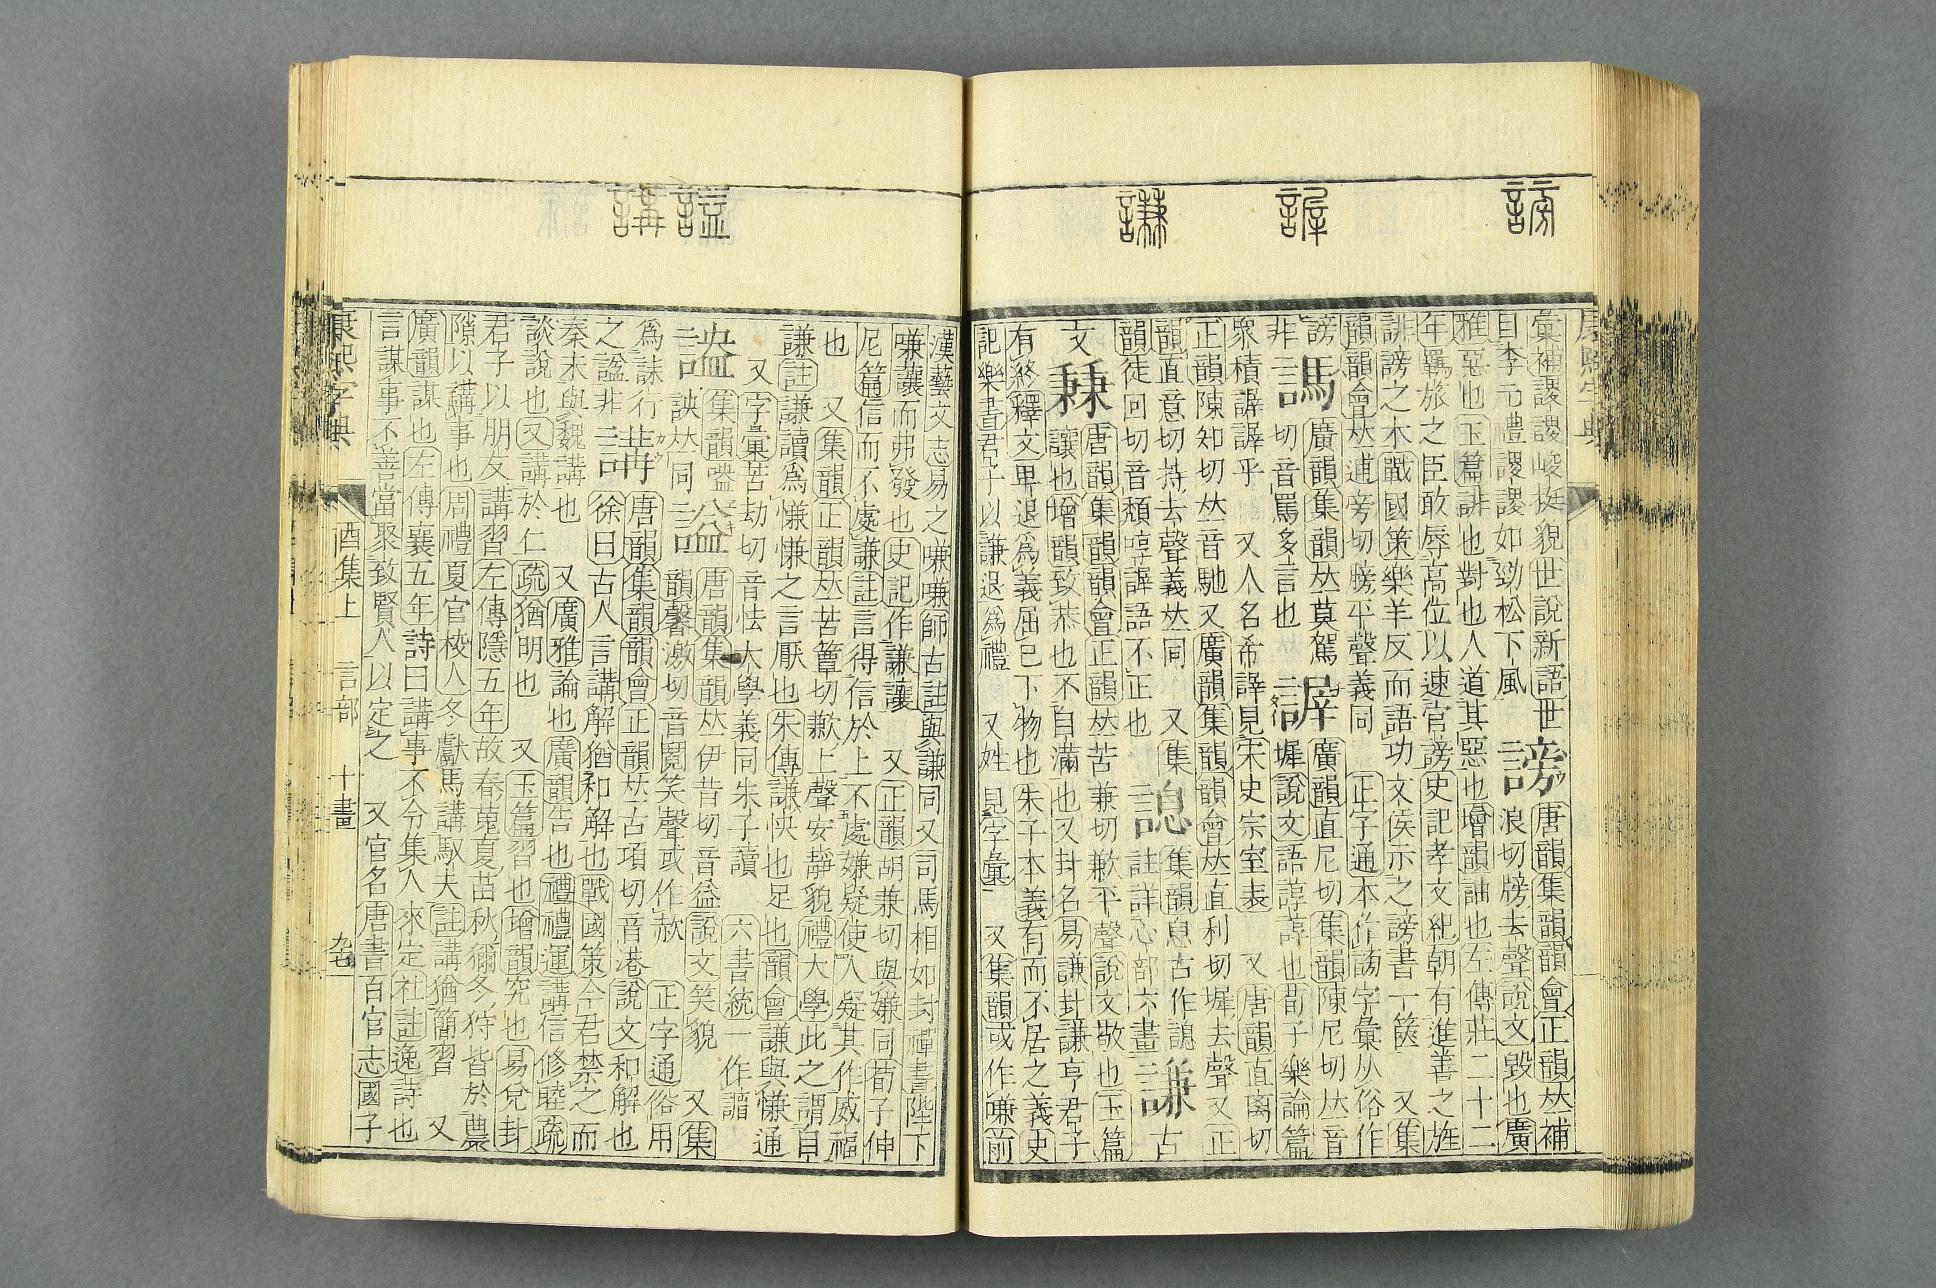 謗
謘
謙
謚
講
彙補謖謖峻挺貌世說新語世
目李元禮謖謖如勁松下風
謗
唐韻集韻韻會正韻𠀤補
浪切牓去聲說文毀也廣
雅惡也玉篇誹也對也人道其惡也增韻訕也左傳莊二十二
年羈旅之臣敢辱高位以速官謗史記孝文紀朝有進善之旌
誹謗之木戰國策樂羊反而語功文侯示之謗書一篋 又集
韻韻會𠀤逋旁切牓平聲義同 正字通本作謗字彙从俗作
謗非
廣韻集韻𠀤莫駕
切音罵多言也
謘
廣韻直尼切集韻陳尼切𠀤音
墀說文語諄謘也荀子樂論篇
眾積謘謘乎 又人名希謘見宋史宗室表 又唐韻直离切
正韻陳知切𠀤音馳又廣韻集韻韻會𠀤直利切墀去聲又正
韻直意切持去聲義𠀤同 又集
韻徒回切音頹謘語不正也
集韻息古作謥
註詳心部六畫
謙
古
文
唐韻集韻韻會正韻𠀤苦兼切歉平聲說文敬也玉篇
讓也增韻致恭也不自滿也又卦名易謙卦謙亨君子
有終釋文卑退爲義屈己下物也朱子本義有而不居之義史
記樂書君子以謙退爲禮 又姓見字彙 又集韻或作嗛前
漢藝文志易之嗛嗛師古註與謙同又司馬相如封禪書陛下
嗛讓而弗發也史記作謙讓 又正韻胡兼切與嫌同荀子仲
尼篇信而不處謙註言得信於上不處嫌疑使人疑其作威福
也 又集韻正韻𠀤苦簟切歉上聲安靜貌禮大學此之謂自
謙註謙讀爲慊慊之言厭也朱傳謙快也足也韻會謙與慊通
又字彙苦劫切音怯大學義同朱子讀 六書統一作譖
集韻嗑
詇𠀤同
唐韻集韻𠀤伊昔切音益說文笑貌 又集
韻馨激切音鬩笑聲或作欯 正字通俗用
爲誄行
之謚非
講
唐韻集韻韻會正韻𠀤古項切音港說文和解也
徐曰古人言講解猶和解也戰國策今君禁之而
秦未與魏講也 又廣雅論也廣韻告也禮禮運講信修睦疏
談說也又講於仁疏猶明也 又玉篇習也增韻究也易兌卦
君子以朋友講習左傳隱五年故春蒐夏苗秋獮冬狩皆於農
隙以講事也周禮夏官校人冬獻馬講馭夫註講猶𥳑習 又
廣韻謀也左傳襄五年詩曰講事不令集人來定社註逸詩也
言謀事不善當聚致賢人以定之 又官名唐書百官志國子
康熙字典
酉集上 言部 十畫